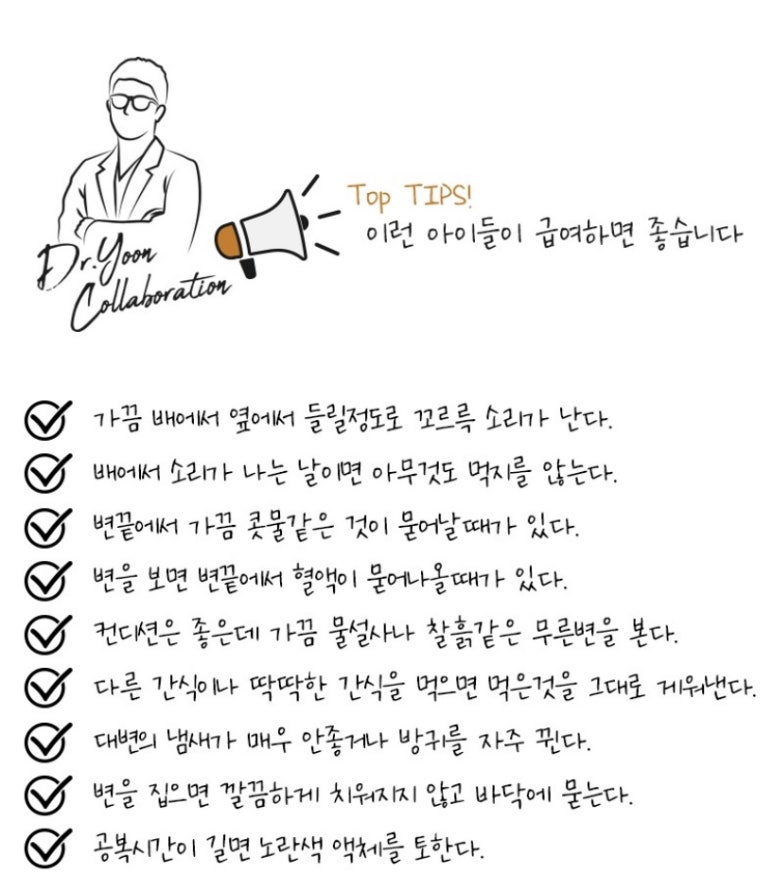 Dr.Yoon
Collaboration
Top TIPS!
이런 아이들이 급여하면 좋습니다
가끔 배에서 옆에서 들릴정도로 꼬르륵 소리가 난다.
배에서 소리가 나는 날이면 아무것도 먹지를 않는다.
변끝에서 가끔 콧물같은 것이 묻어날때가 있다.
변을 보면 변끝에서 혈액이 묻어나올때가 있다.
컨디션은 좋은데 가끔 물설사나 찰흙같은 무른변을 본다.
다른 간식이나 딱딱한 간식을 먹으면 먹은것을 그대로 게워낸다.
대변의 냄새가 매우 안좋거나 방귀를 자주 뀐다.
변을 집으면 깔끔하게 치워지지 않고 바닥에 묻는다.
공복시간이 길면 노란색 액체를 토한다.